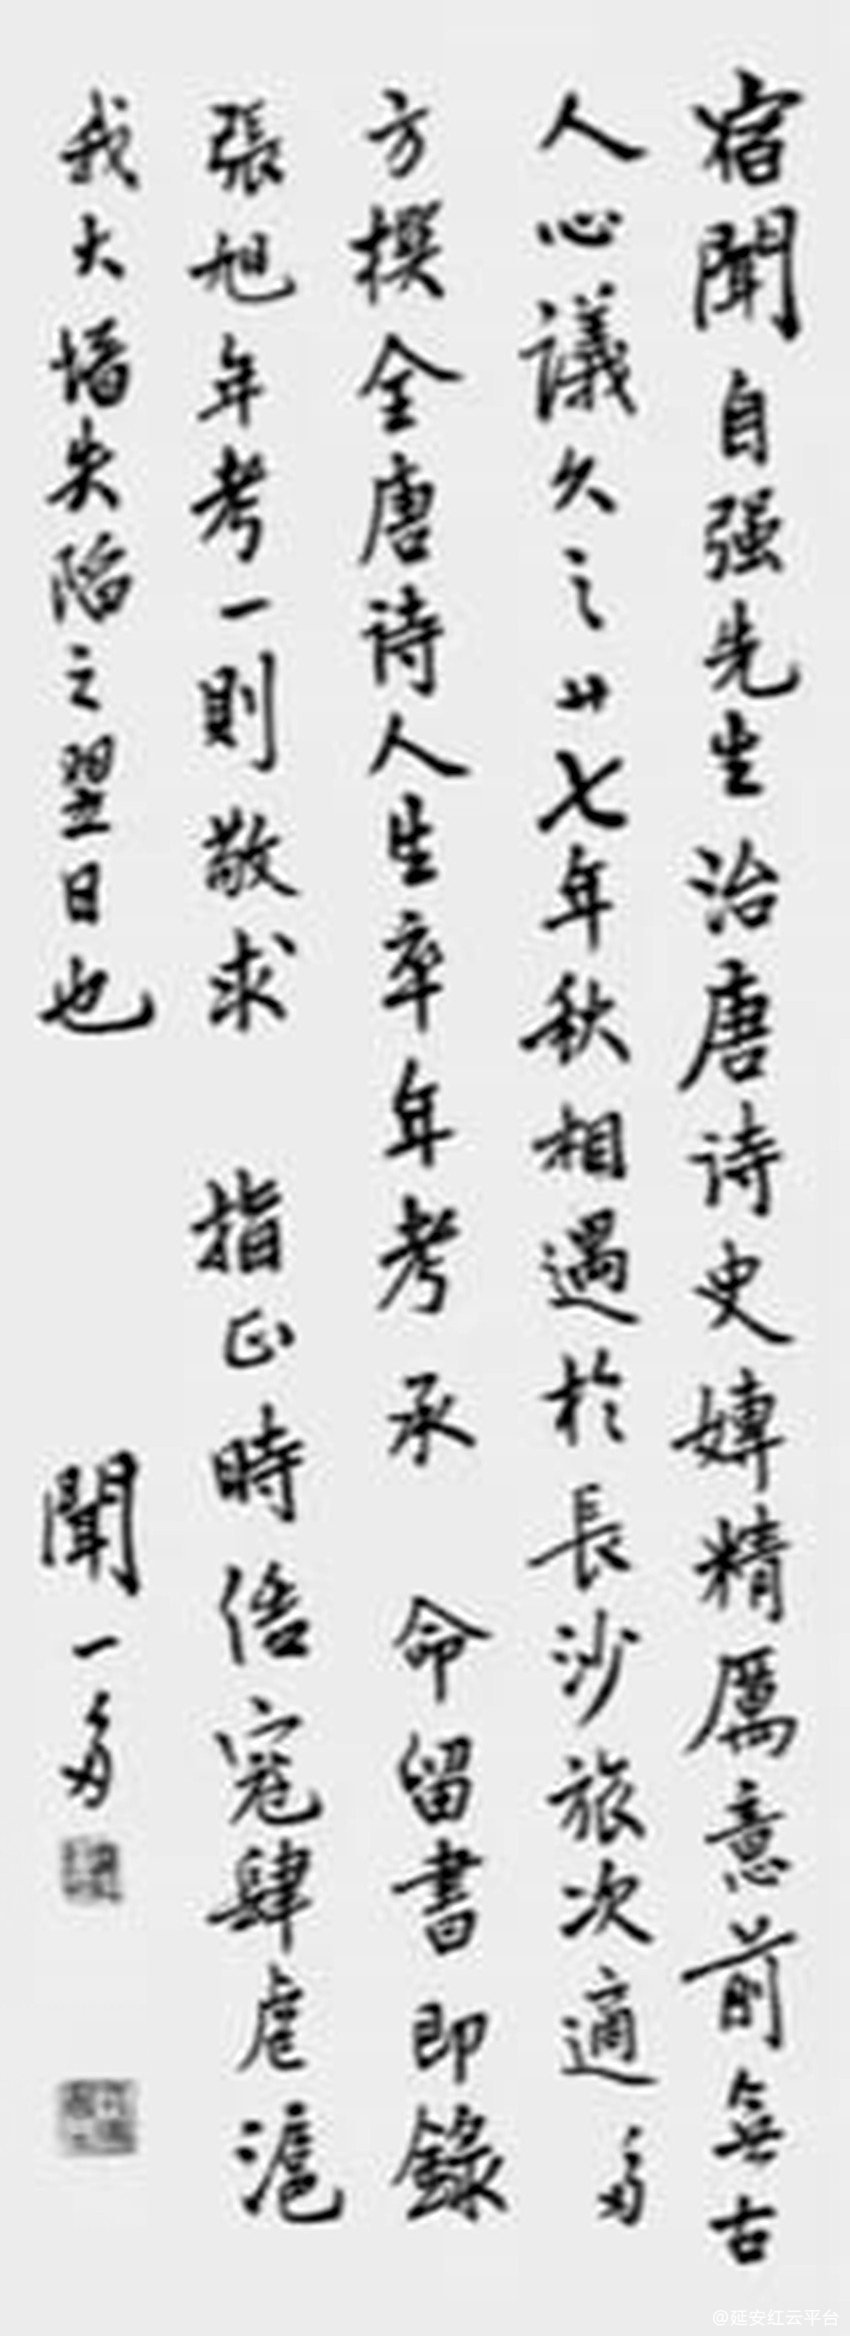 宿聞自强先生治唐诗史婢精厲意前無古
人心議久之廿七年秋相遇於長沙旅次適多
方撰全唐诗人生卒年考承 命留書即錄
張旭年考一則敬求 指正時倭寇肆虐滬
我大場失陷之翌日也 聞一多
@延安红云平台